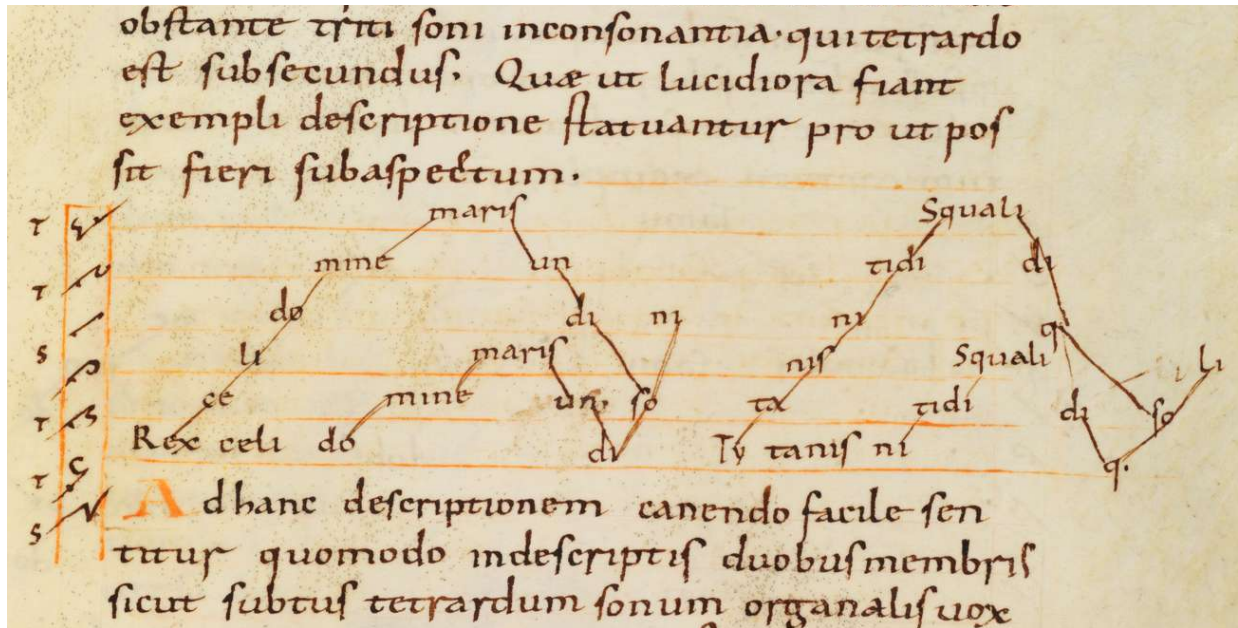 obstante triti soni inconsonantia. qui tetrardo
est subsecundus. Quæ ut lucidiora fiant
exempli descriptione statuantur pro ut pos
sit fieri subaspectum.
T maris Squali
T mine un tidi di
do di ni ni q
S li maris nis Squali li
T ce mine un. so ta tidi di so
T Rex celi do di Ty tanis ni q.
S Ad hanc descriptionem canendo facile sen
titur quomodo indescriptis duobus membris
sicut subtus tetrardum sonum organalis uox